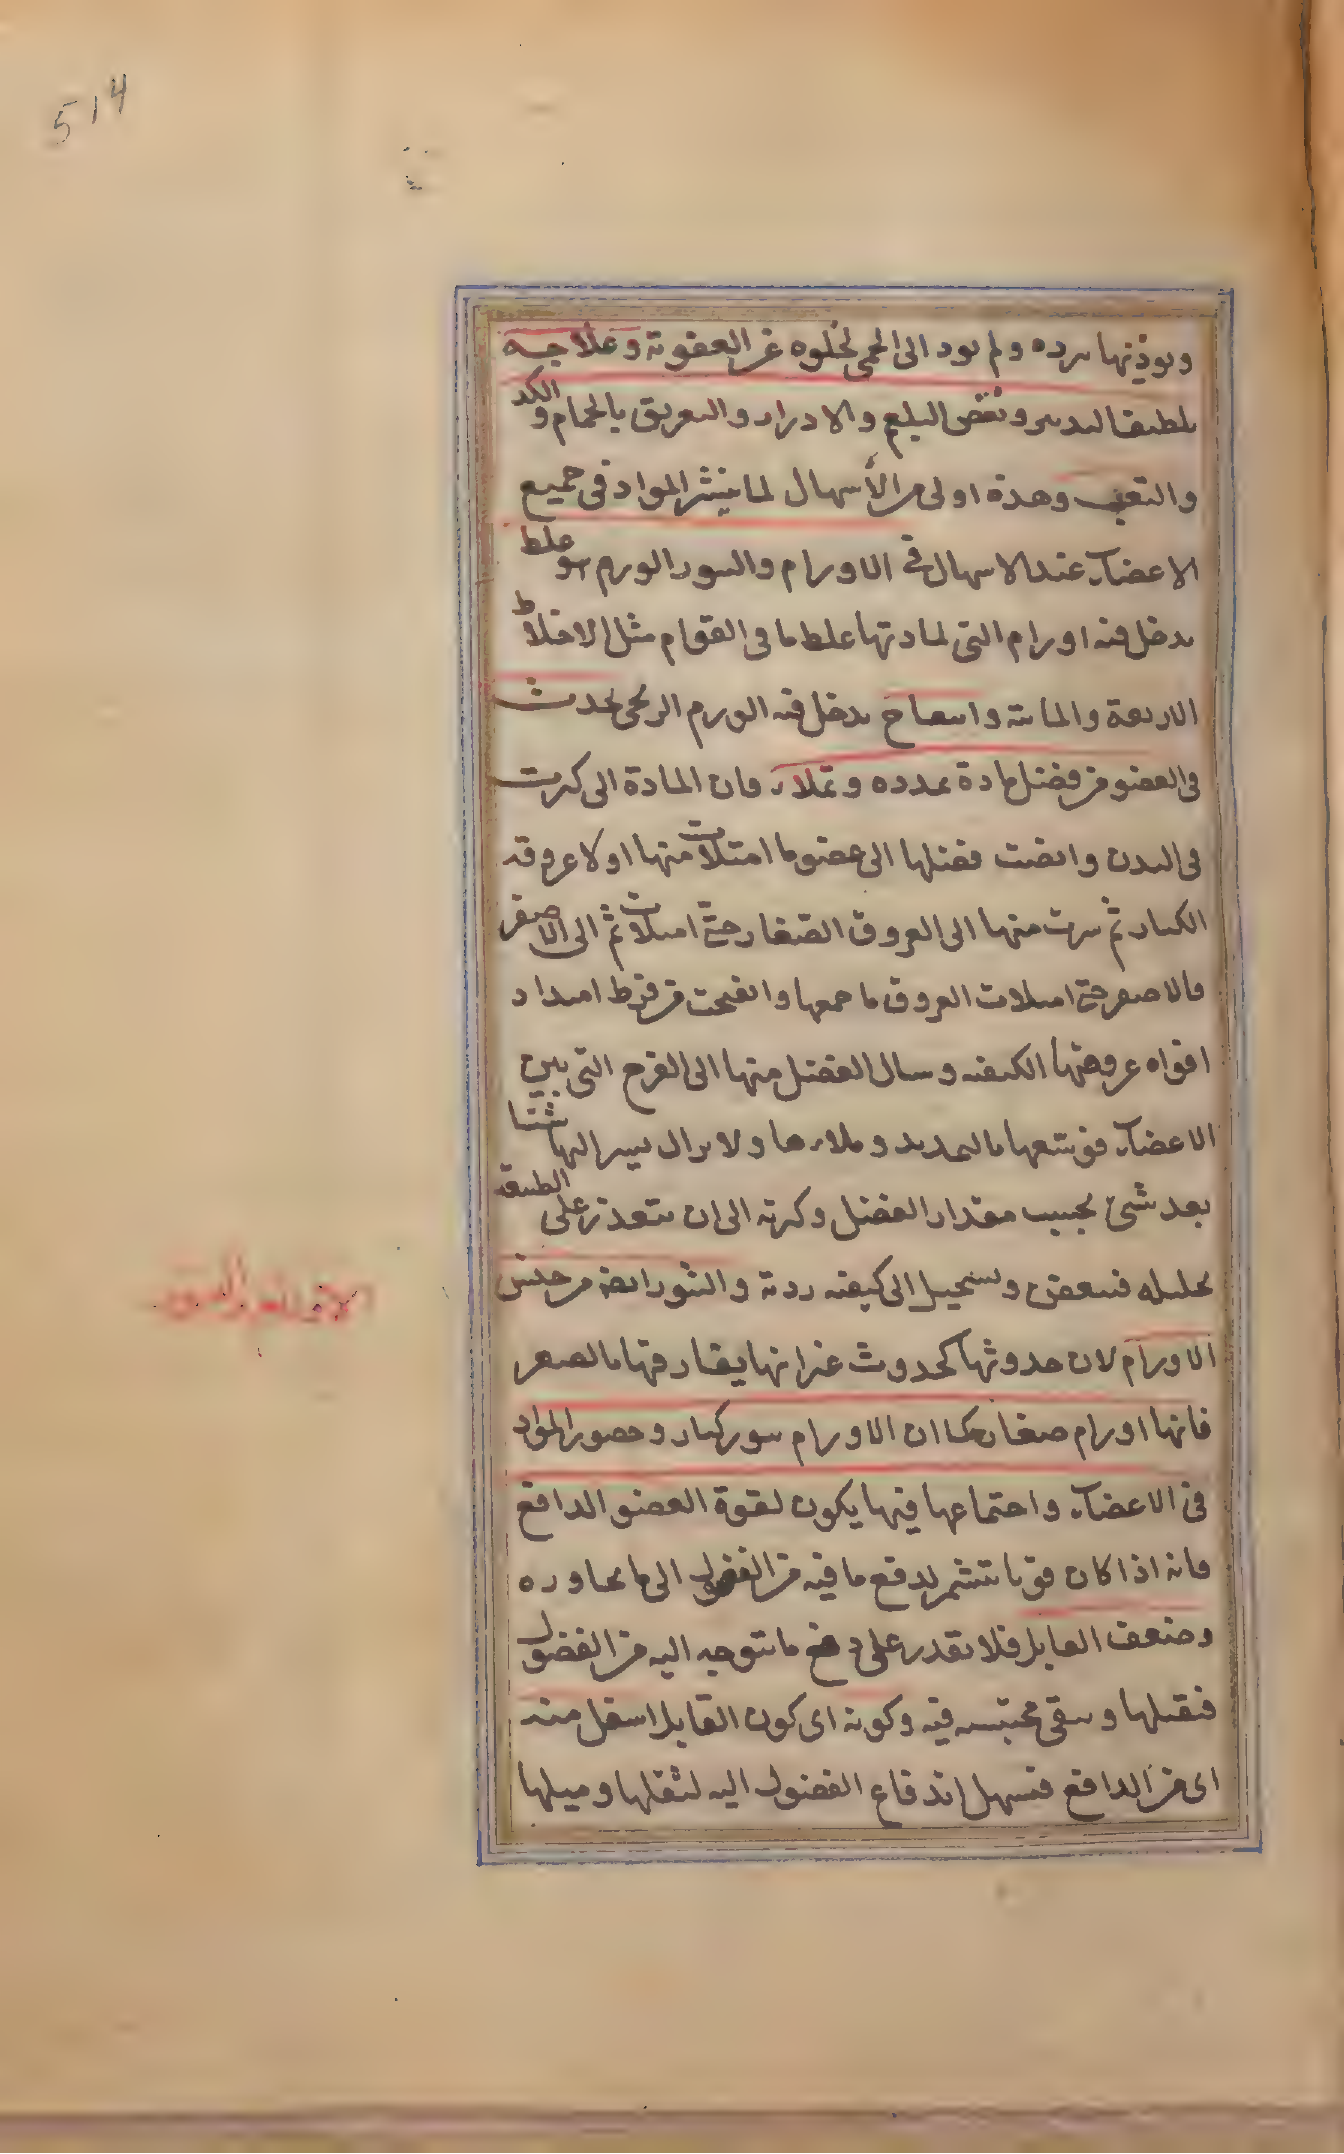 514
ويوذيها ببرده ولم يود الى الحمى لخلوه عن العفونة وعلاجه
تلطيف التدبير ونفض البلغم والادرار والتعريق بالحمام والكد
والتعب وهذه اولى من الأسهال لما ينشر المواد فى جميع
الاعضاء عند الاسهال فى الاورام والبثور الورم هو غلظ
يدخل فيه اورام التى لمادتها غلظ ما فى القوام مثل الاخلاط
الاربعة والمائية وانتفاخ يدخل فيه الورم الريحى يحدث
فى العضو من فضل مادة تمدده وتملاء فان المادة اذا كثرت
فى البدن وانصبت فضلها الى عضو ما امتلات منها اولا عروقه
الكبار ثم سرت منها الى العروق الصغار حتى امتلات ثم الى الاصغر
فالاصغر حتى امتلات العروق باجمعها وانفتحت من فرط امتداد
افواه عروقها الكثيفه وسال الفضل منها الى الفرج التى بين
الاعضاء فوسعها بالتمديد وملاءها ولا يزال يسير اليها شئيا
بعد شئ بحسب مقدار الفضل وكثرته الى ان يتعذر على الطبيعة
تحليله فيتعفن ويستحيل الى كيفية ردية والبثور ايضا من جنس
الاورام لان حدوثها كحدوث غير انها يفارقها بالصغر
فانها اورام صغار كما ان الاورام بثور كبار وحصور المواد
فى الاعضاء واجتماعها فيها يكون لقوة العضو الدافع
فانه اذا كان قويا يتشمر لدفع ما فيه من الفضول الى ما يجاوره
وضعف القابل فلا يقدر على دفع ما يتوجه اليه من الفضول
فيقبلها ويبقى محتبسه فيه وكونه اى كون القابل اسفل منه
اى من الدافع فيسهل اندفاع الفضول اليه لثقلها وميلها